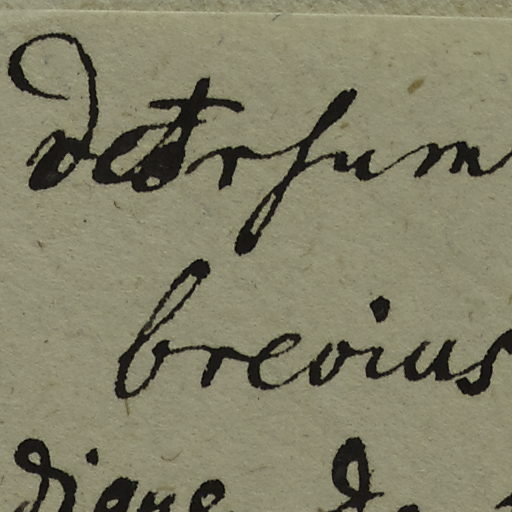 deorsum
brevius
digne de